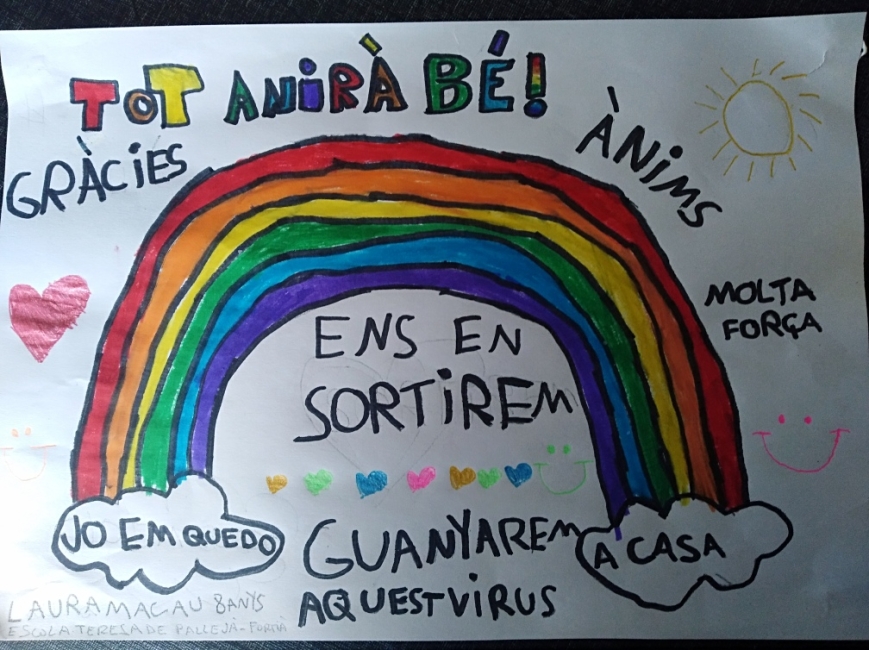 TOT ANIRÀ BÉ!
GRÀCIES
ÀNIMS
MOLTA
FORÇA
ENS EN
SORTIREM
JO EM QUEDO
A CASA
GUANYAREM
AQUEST VIRUS
LAURA MACAU 8 ANYS
ESCOLA TERESA DE PALLEJÀ - FORTIÀ